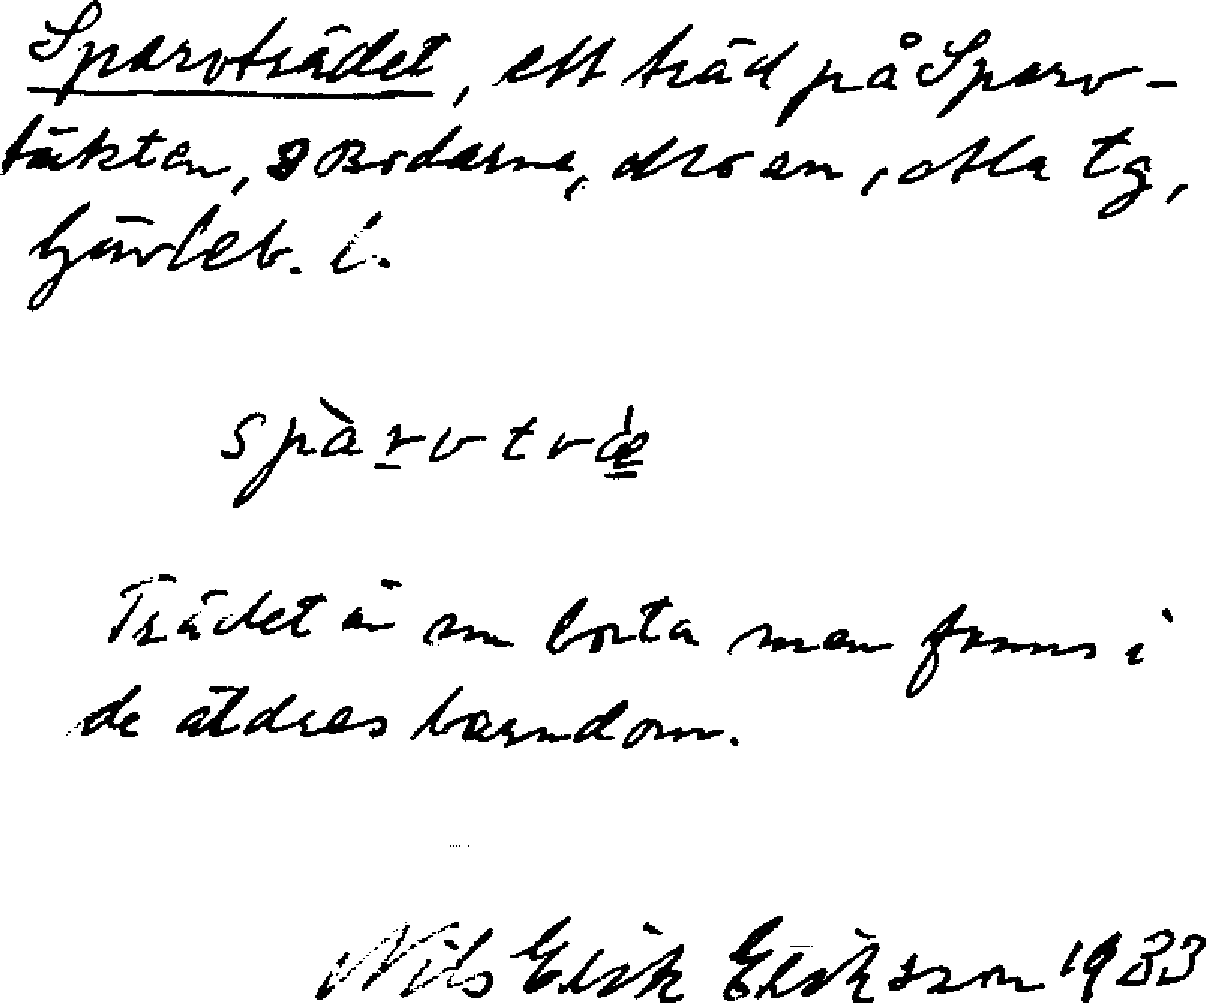 Sparvträdet, ett träd på Sparv-
täkten, Bodarne, Moen, Ala tg,
Gävleb. l.
spàrvtræ
Trädet är nu borta men fanns i
de äldres barndom.
Nils Erik Eriksson 1933